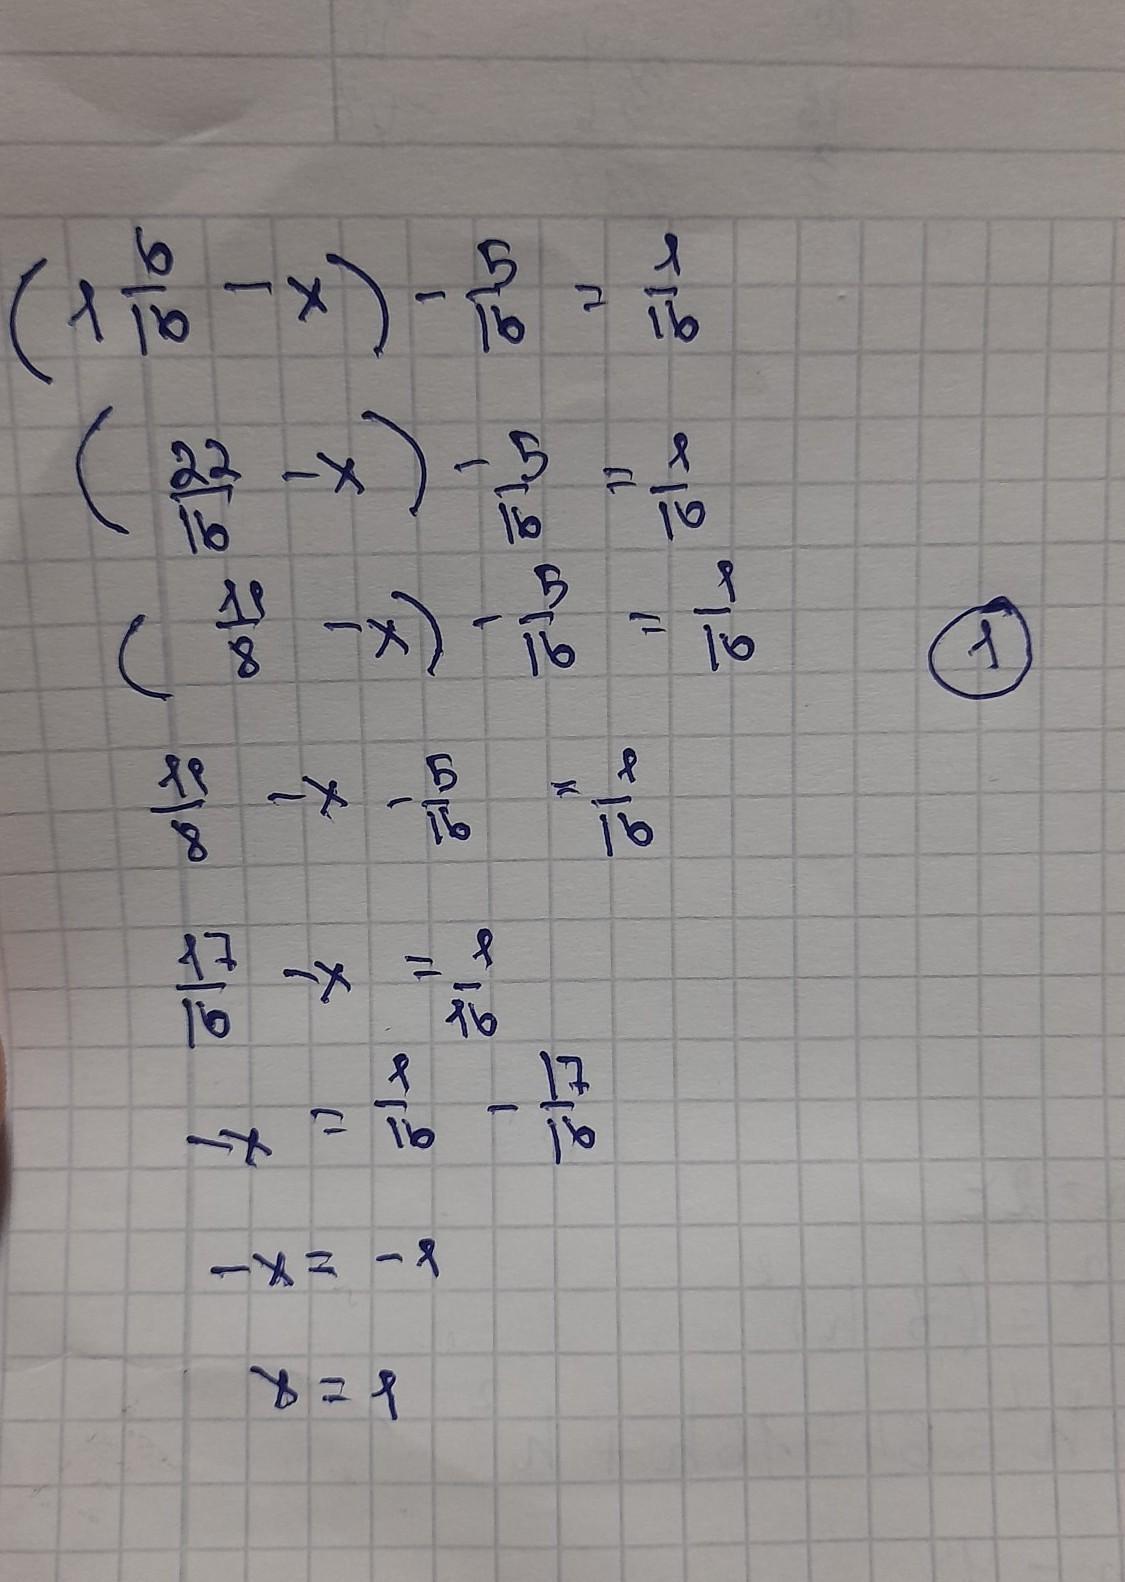 (1 6/16 - x) - 5/16 = 1/16
(22/16 - x) - 5/16 = 1/16
(11/8 - x) - 5/16 = 1/16
1
11/8 - x - 5/16 = 1/16
17/16 - x = 1/16
-x = 1/16 - 17/16
-x = -1
x = 1